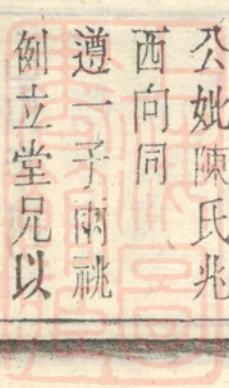 公妣陳氏兆
西向同
遵一子兩祧
例立堂兄以